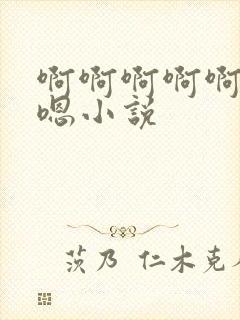 啊啊啊啊啊
嗯小说
茨乃 仁木克